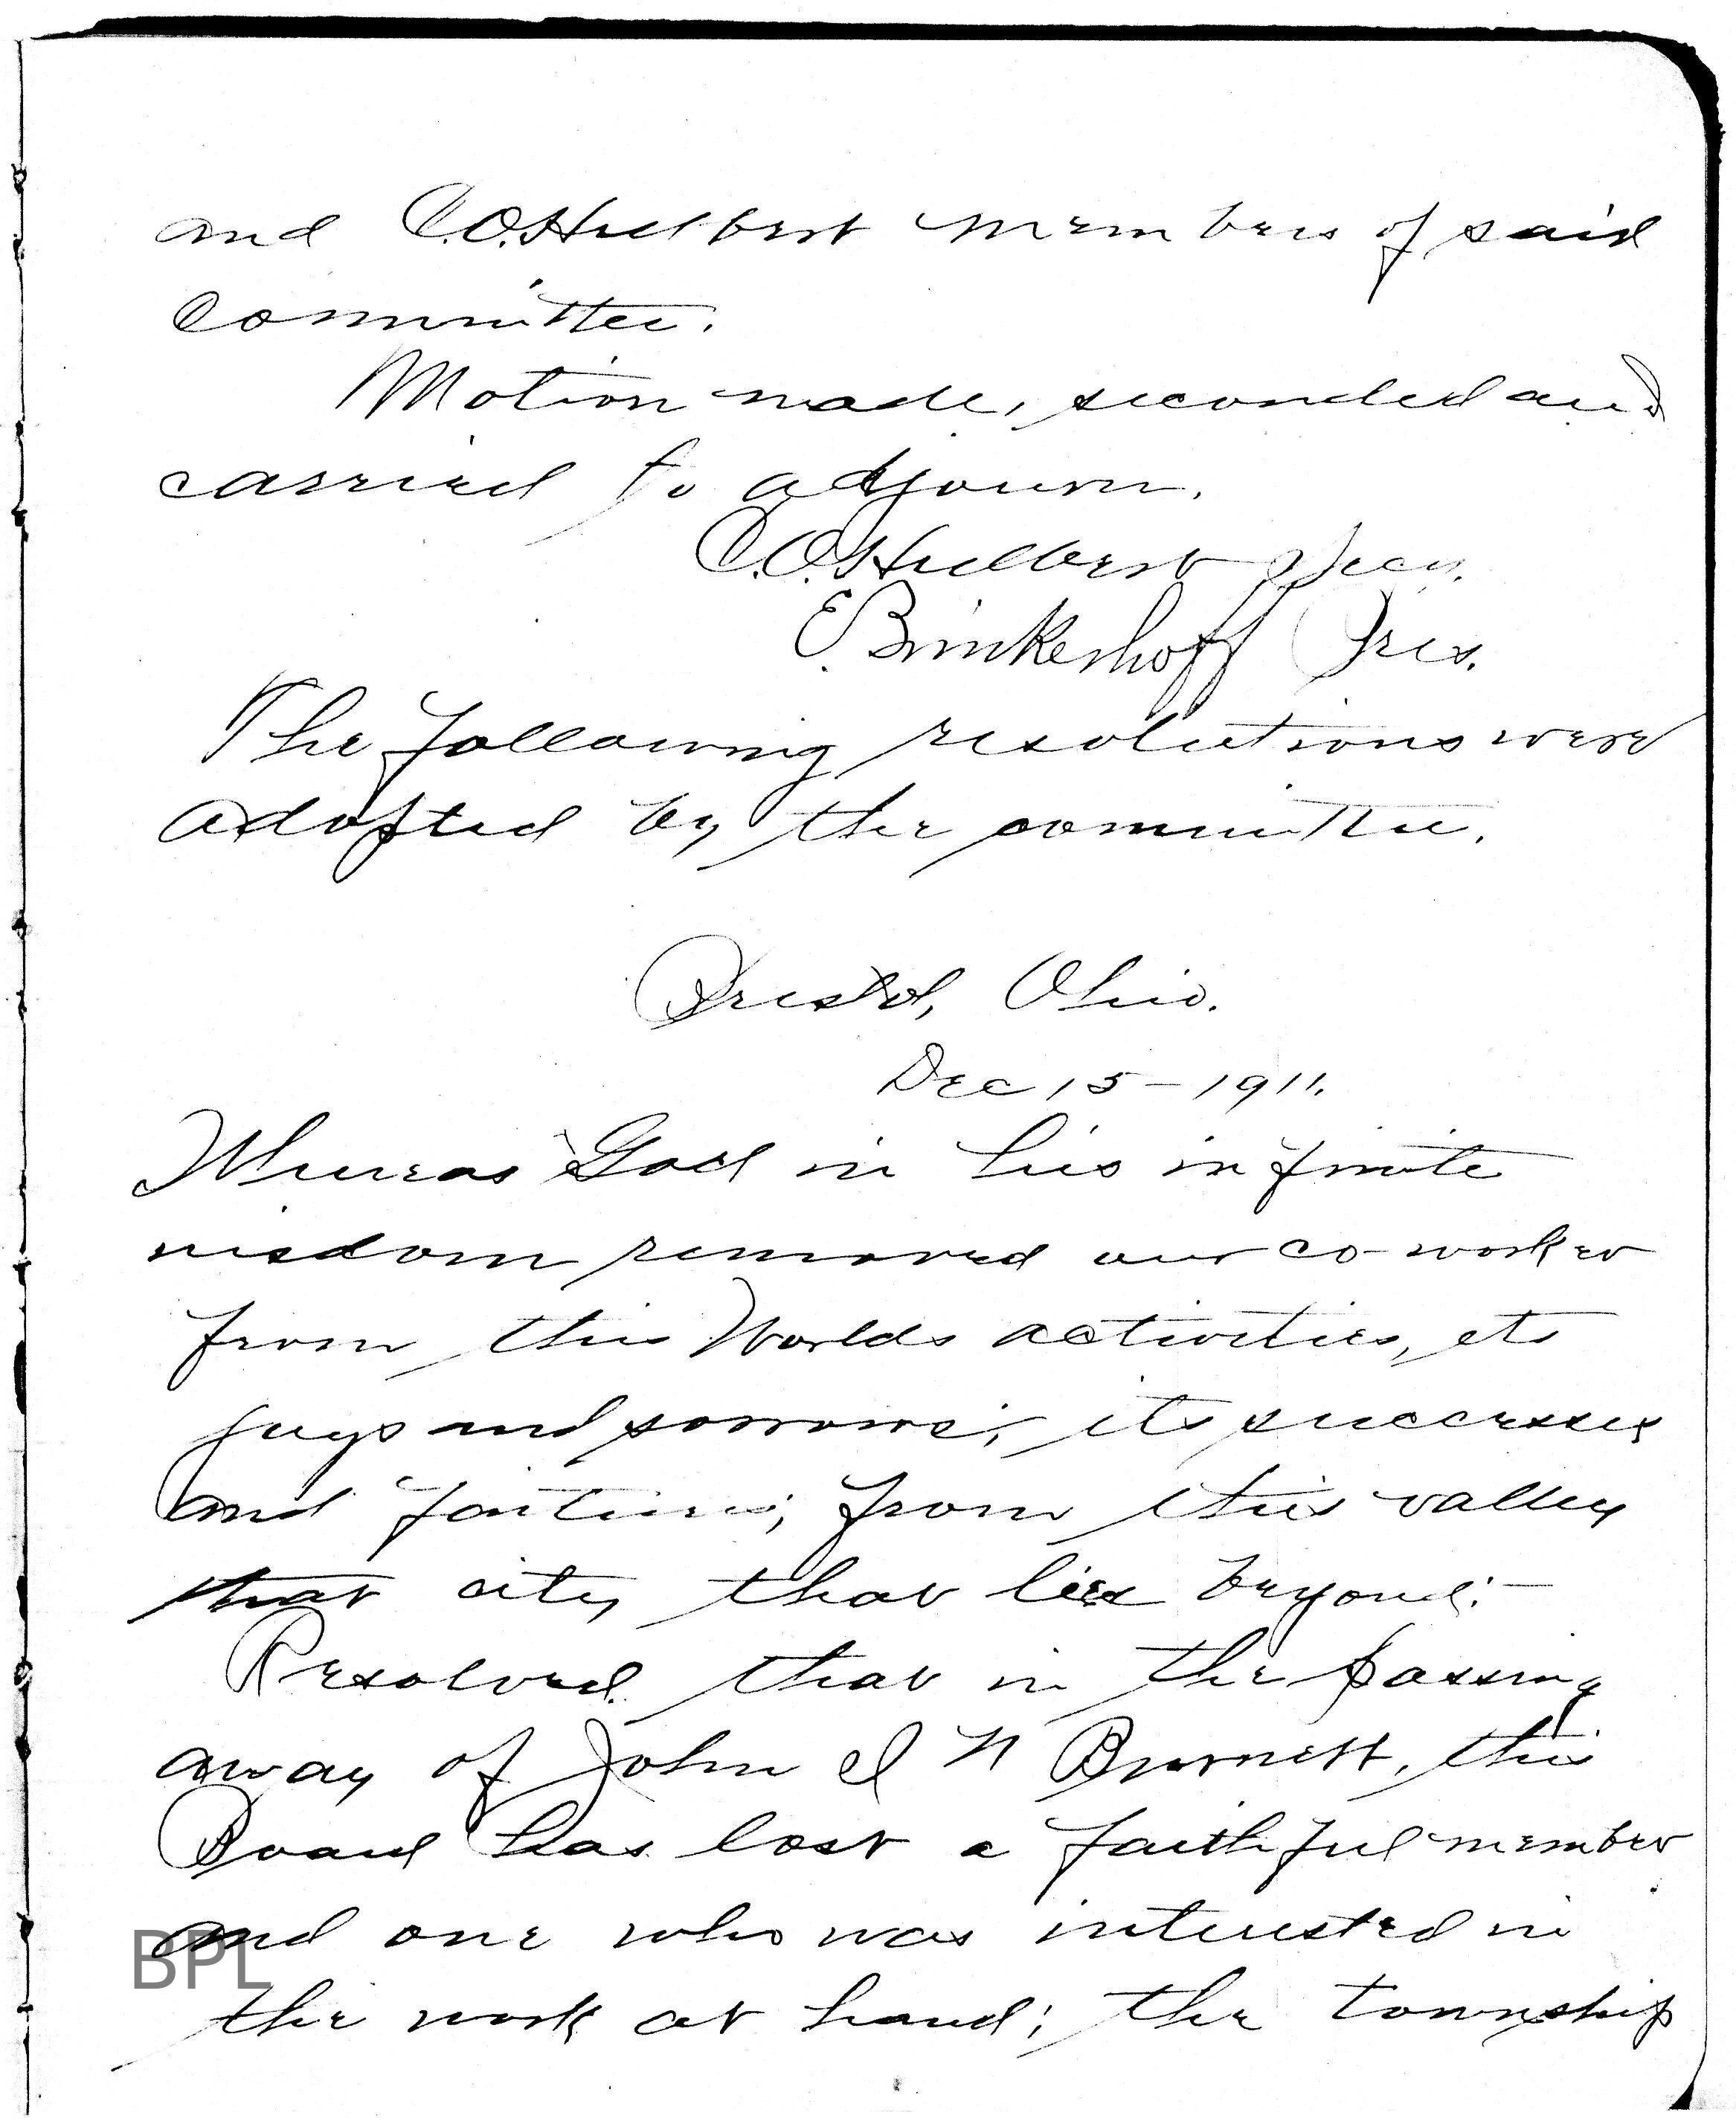 and C.O. Hulbert members of said
committee.
Motion made, seconded and
carried to adjourn.
C.O. Hulbert Secy.
E. Brinkerhoff Pres.
The following resolutions were
adopted by the committee.
Bristol, Ohio.
Dec 15 - 1911.
Whereas God in his infinite
wisdom removed our co-worker
from this Worlds activities, its
joys and sorrows; its successes
and ; from this valley
that city that lies beyond:-
Resolved that in the passing
away of John I N Burnett, this
Board has lost a faithful member
and one who was interested in
the work at hand; the township
BPL